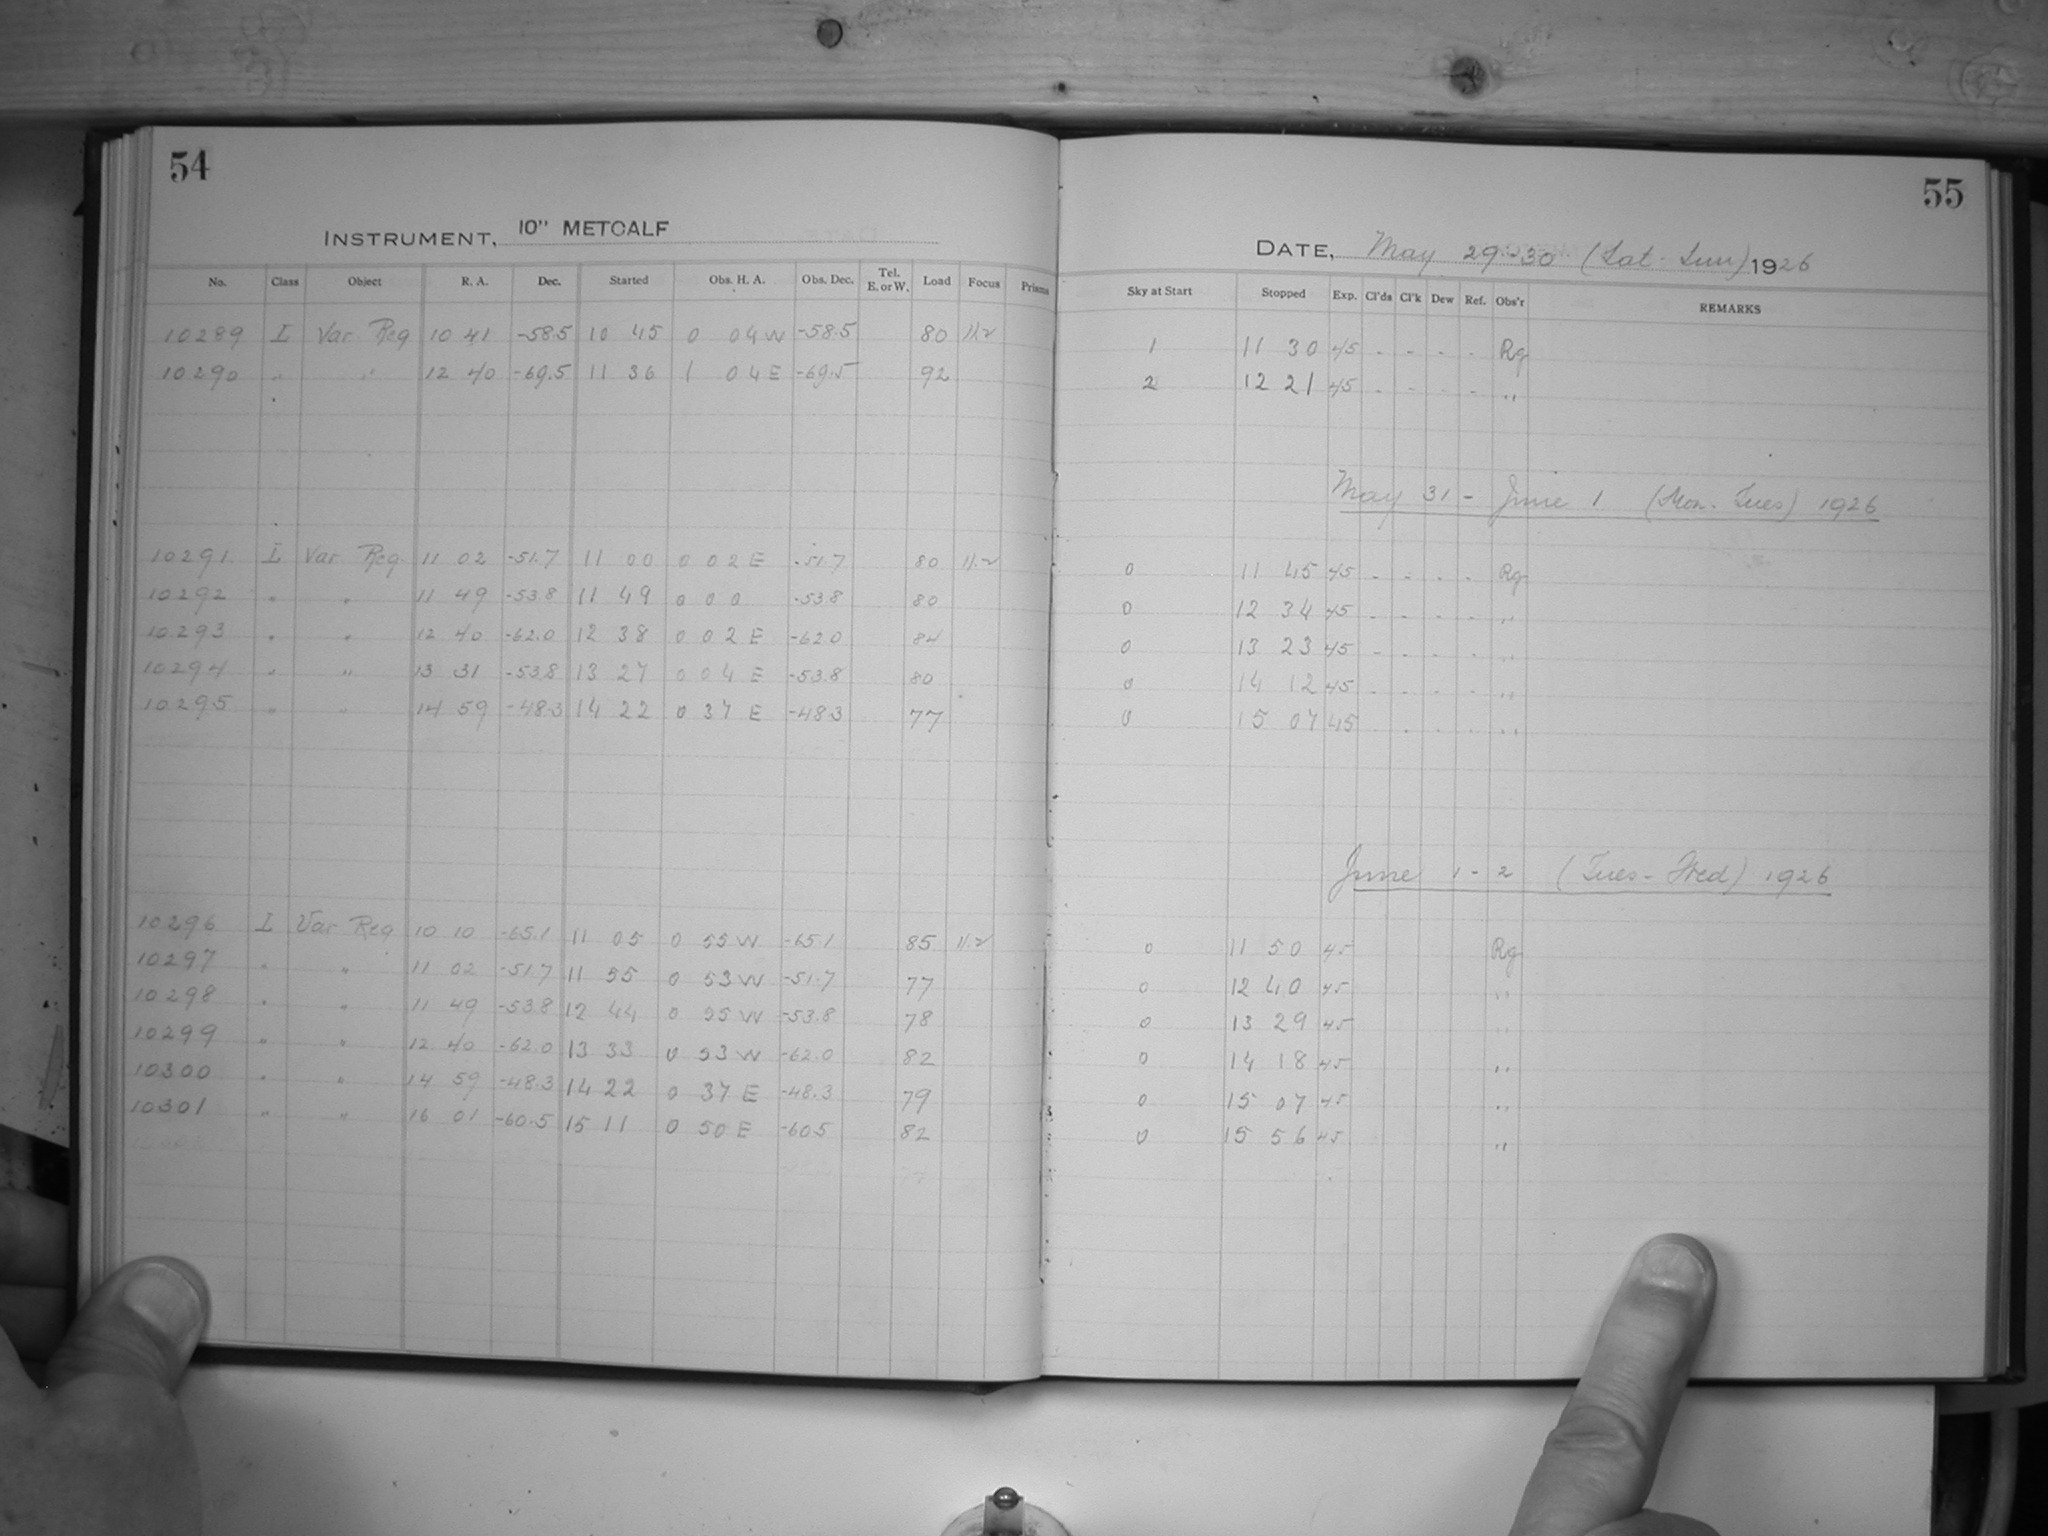 54
INSTRUMENT, 10" METCALF
No. Class Object R. A. Dec. Started Obs. H. A. Obs. Dec. Tel. E. or W. Load Focus Prisms
10289 I Var Reg 10 41 -58.5 10 45 0 04 W -58.5 80 11.2
10290 " " 12 40 -69.5 11 36 1 04 E -69.5 92
10291 I Var Reg. 11 02 -51.7 11 00 0 02 E -51.7 80 11.2
10292 " " 11 49 -53.8 11 49 0 0 0 -53.8 80
10293 " " 12 40 -62.0 12 38 0 02 E -62.0 84
10294 " " 13 31 -53.8 13 27 0 04 E -53.8 80
10295 " " 14 59 -48.3 14 22 0 37 E -48.3 77
10296 I Var Reg 10 10 -65.1 11 05 0 55 W -65.1 85 11.2
10297 " " 11 02 -51.7 11 55 0 53 W -51.7 77
10298 " " 11 49 -53.8 12 44 0 55 W -53.8 78
10299 " " 12 40 -62.0 13 33 0 53 W -62.0 82
10300 " " 14 59 -48.3 14 22 0 37 E -48.3 79
10301 " " 16 01 -60.5 15 11 0 50 E -60.5 82
55
DATE, May 29-30 (Sat-Sun) 1926
Sky at Start Stopped Exp. Cl'ds Cl'k Dew Ref. Obs'r REMARKS
1 11 30 45 - - - - Rg
2 12 21 45 - - - - "
May 31 - June 1 (Mon. Tues) 1926
0 11 45 45 - - - - Rg
0 12 34 45 - - - - "
0 13 23 45 - - - - "
0 14 12 45 - - - - "
0 15 07 45 - - - - "
June 1-2 (Tues-Wed) 1926
0 11 50 45 Rg
0 12 40 45 "
0 13 29 45 "
0 14 18 45 "
0 15 07 45 "
0 15 56 45 "